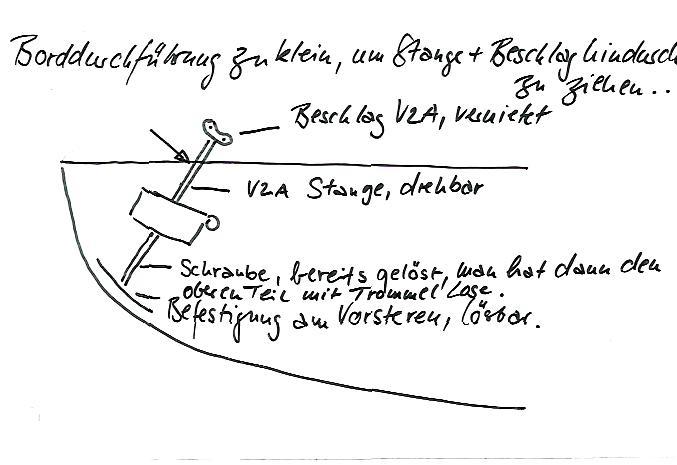 Borddurchführung zu klein, um Stange + Beschlag hindurch
zu ziehen..
Beschlag V2A, vernietet
V2A Stange, drehbar
Schraube, bereits gelöst, man hat dann den
oberen Teil mit Trommel lose.
Befestigung am Vorsteven, lösbar.